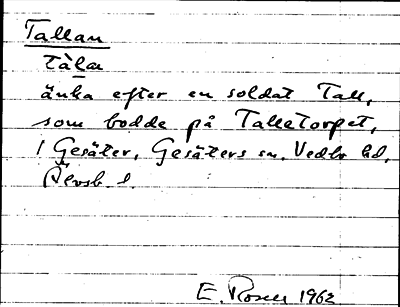 Tallan
tàla
änka efter en soldat Tall,
som bodde på Talletorpet,
i Gesäter, Gesäters sn, Vedbo hd,
Älvsb. l.
E. Rosell 1962